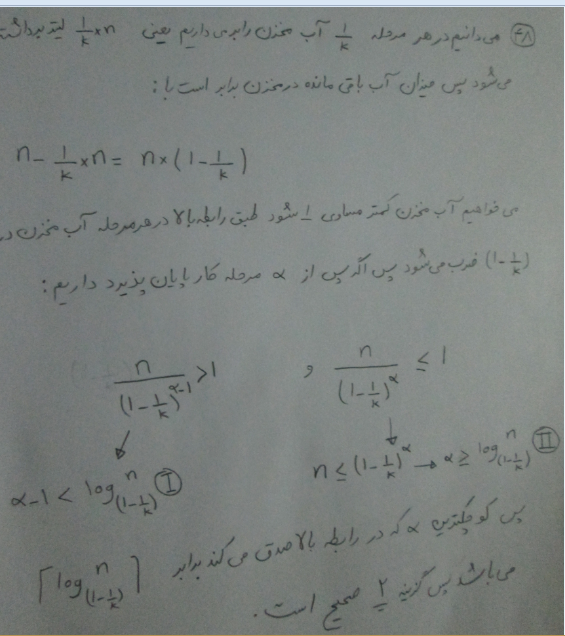 ۴۸) می‌دانیم در هر مرحله 1/k آب مخزن را برمی‌داریم یعنی 1/k × n لیتر برداشته
می‌شود پس میزان آب باقی مانده در مخزن برابر است با:
n - 1/k × n = n × (1 - 1/k)
می خواهیم آب مخزن کمتر مساوی 1 شود طبق رابطه بالا در هر مرحله آب مخزن در
(1 - 1/k) ضرب می‌شود پس اگر پس از α مرحله کار پایان پذیرد داریم:
n / (1 - 1/k)^α ≤ 1 و n / (1 - 1/k)^(α-1) > 1
n ≤ (1 - 1/k)^α → α ≥ log_(1 - 1/k) n Ⅱ
α - 1 < log_(1 - 1/k) n Ⅰ
پس کوچکترین α که در رابطه بالا صدق می کند برابر ⌈log_(1 - 1/k) n⌉
می باشد پس گزینه ۲ صحیح است.